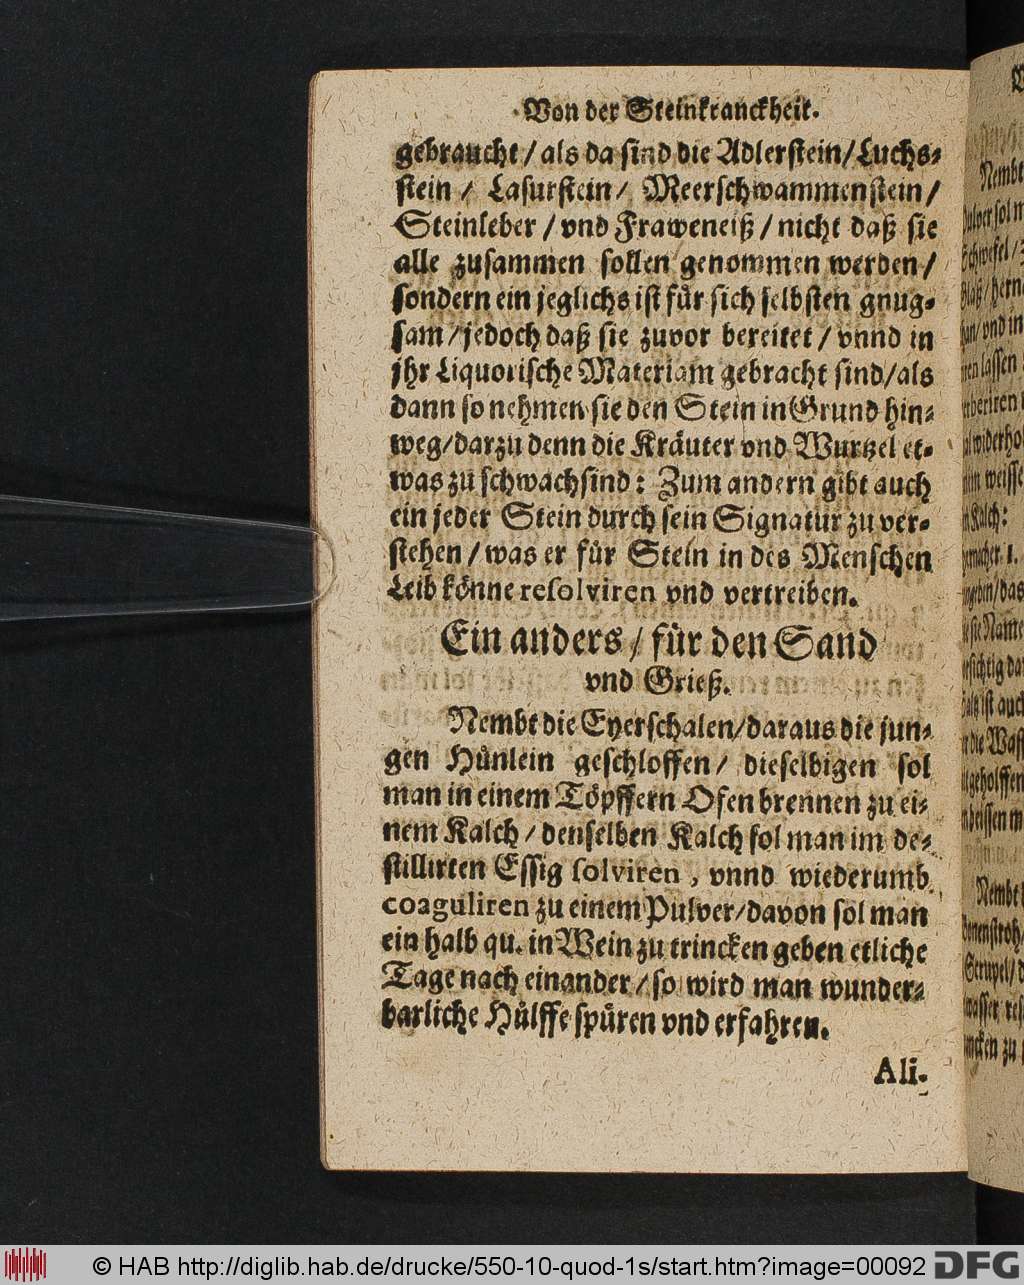 Von der Steinkranckheit.
gebraucht / als da sind die Adlerstein / Luchs⸗
stein / Lasurstein / Meerschwammenstein /
Steinleber / vnd Fraweneiß / nicht daß sie
alle zusammen sollen genommen werden /
sondern ein jeglichs ist für sich selbsten gnug⸗
sam / jedoch daß sie zuvor bereitet / vnnd in
jhr Liquorische Materiam gebracht sind / als
dann so nehmen sie den Stein in Grund hin⸗
weg / darzu denn die Kräuter vnd Wurtzel et⸗
was zu schwach sind: Zum andern gibt auch
ein jeder Stein durch sein Signatur zu ver⸗
stehen / was er für Stein in des Menschen
Leib könne resolviren vnd vertreiben.
Ein anders / für den Sand
vnd Grieß.
Nembt die Eyerschalen / daraus die jun⸗
gen Hünlein geschloffen / dieselbigen sol
man in einem Töpffern Ofen brennen zu ei⸗
nem Kalch / denselben Kalch sol man im de⸗
stillirten Essig solviren, vnnd wiederumb
coaguliren zu einem Pulver / davon sol man
ein halb qu. in Wein zu trincken geben etliche
Tage nach einander / so wird man wunder⸗
barliche Hülffe spüren vnd erfahren.
Ali.
© HAB http://diglib.hab.de/drucke/550-10-quod-1s/start.htm?image=00092
DFG